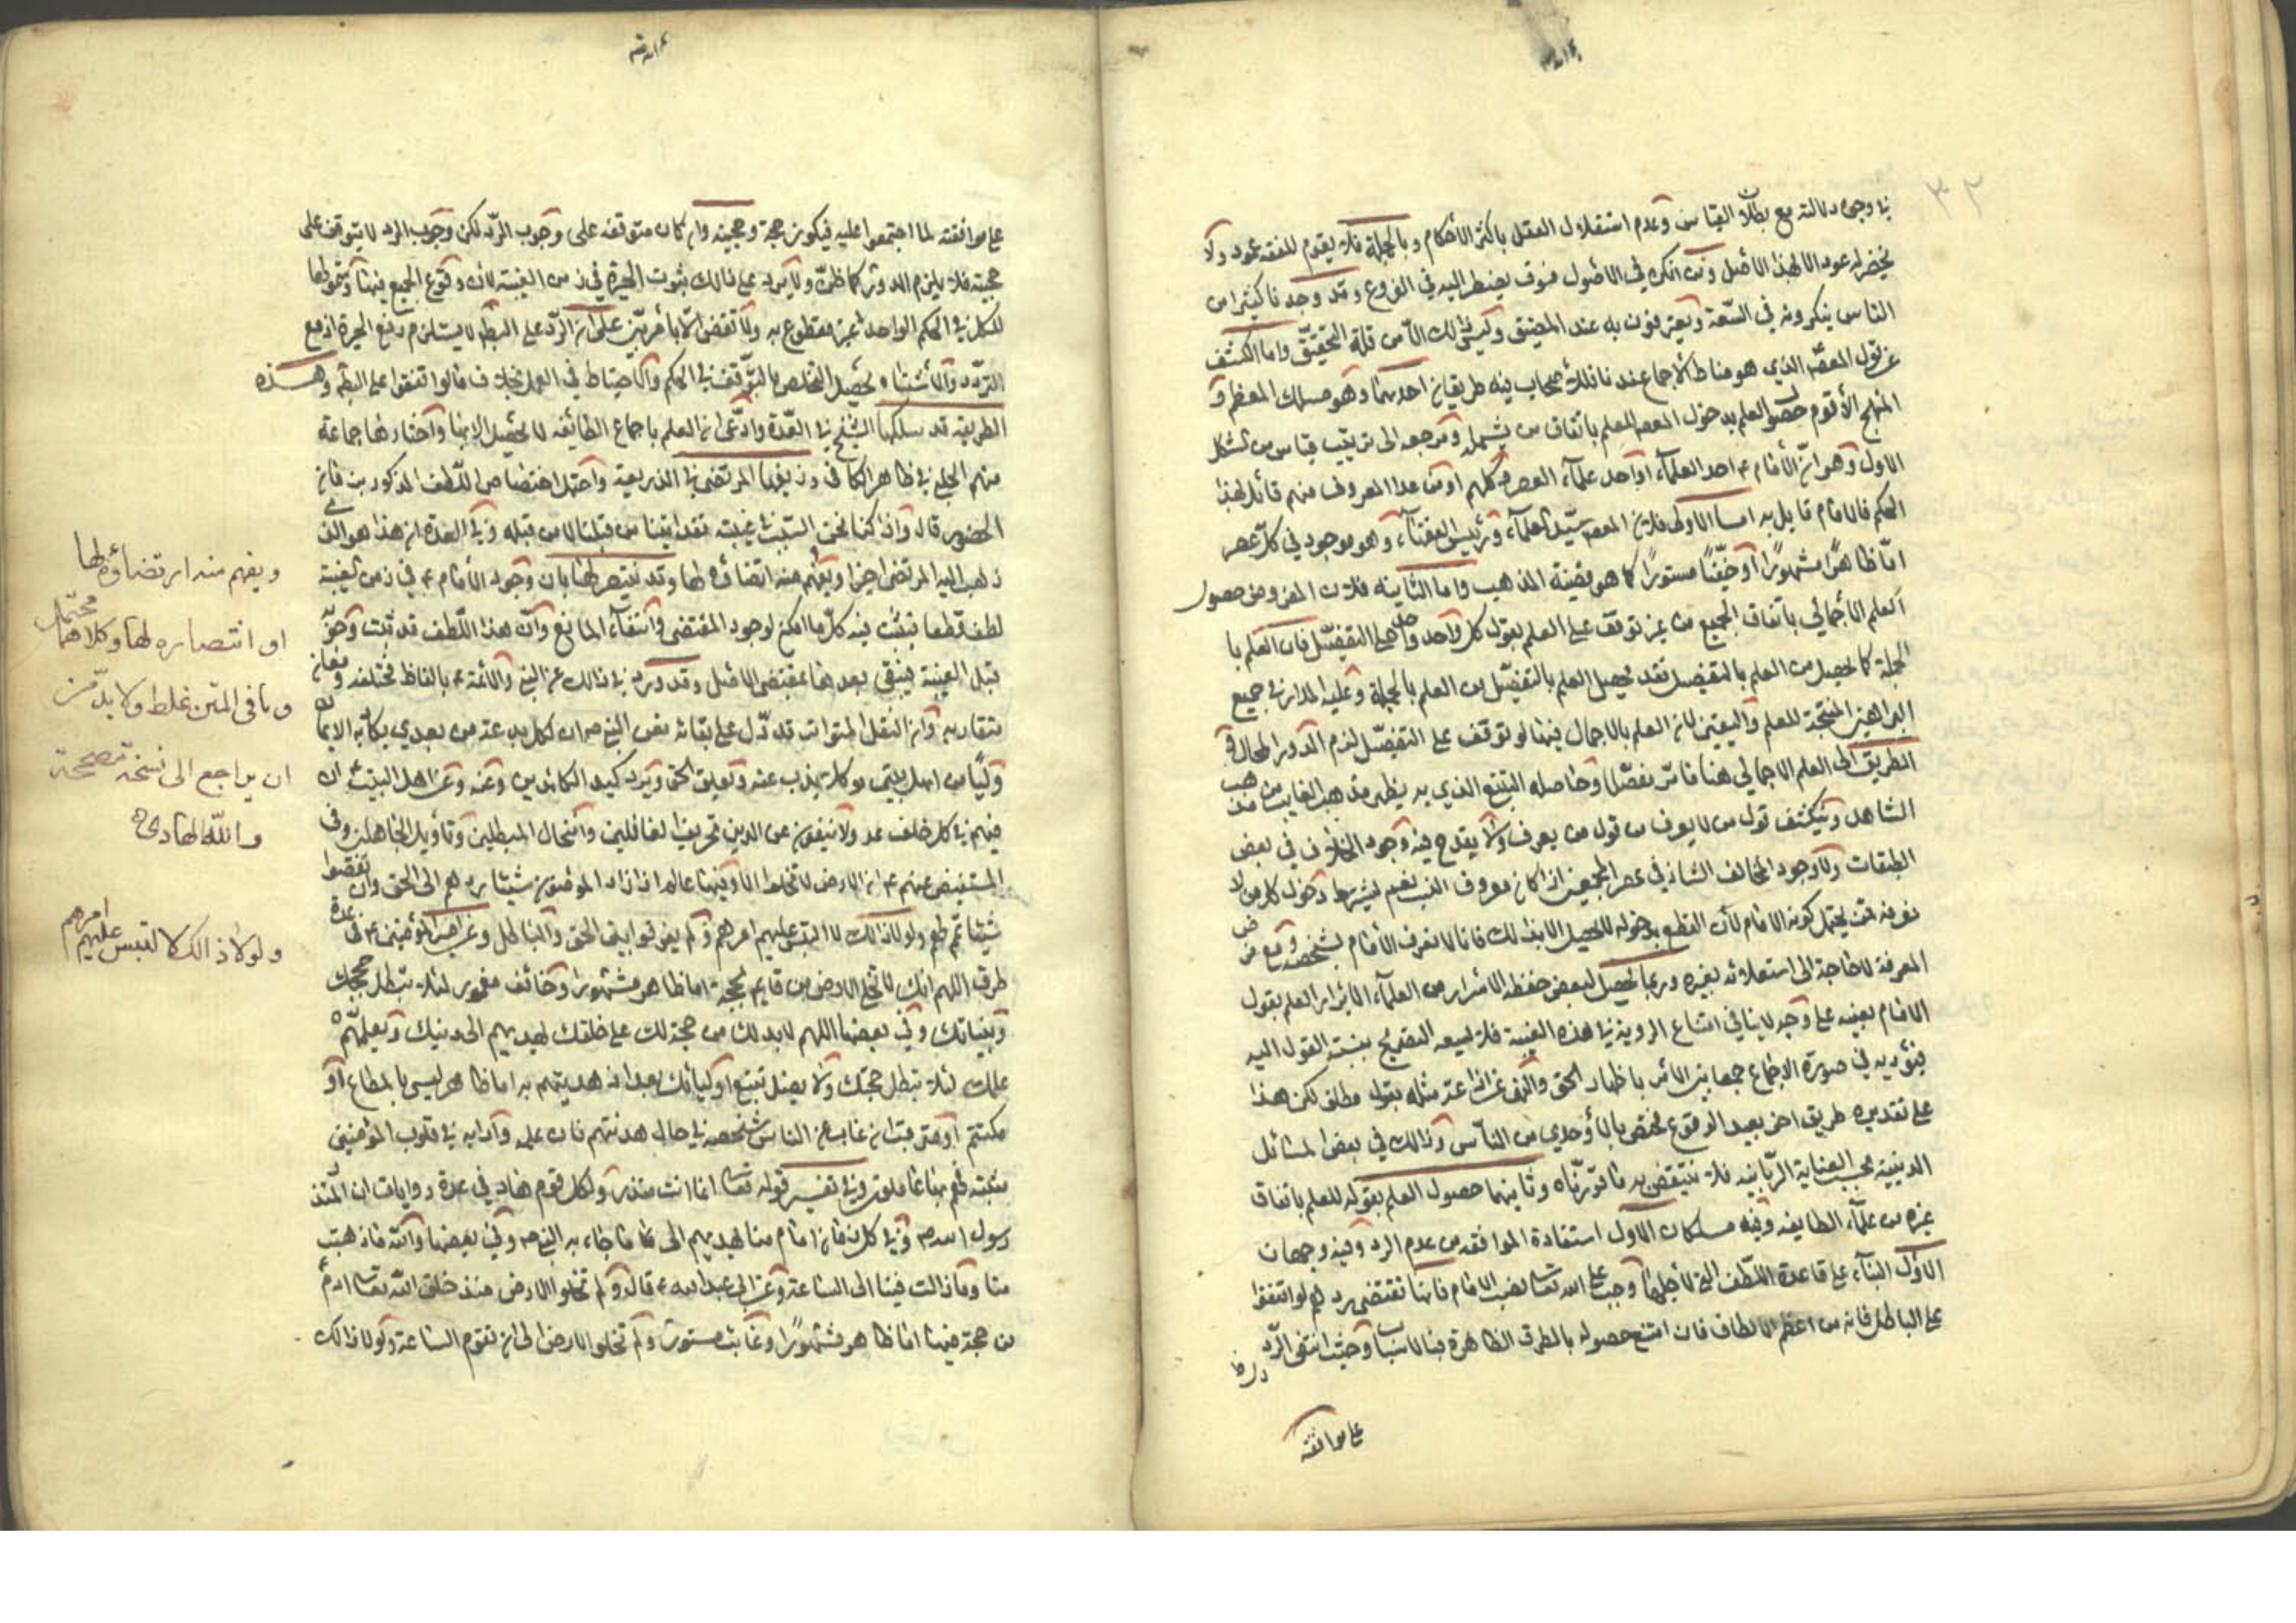 في وجوه دلالته مع بطلان القياس وعدم استقلال العقل باكثر الأحكام وبالجملة فلا يقوم للفقه عمود ولا
يخضر له عود الا بهذا الأصل ومن انكره في الأصول فسوف يضطر اليه في الفروع وقد وجدنا كثيرا من
الناس ينكرونه في السّعة ويعترفون به عند المضيق وليس ذلك الّا من قلة التحقيق واما الكشف
عن قول المعصوم الذي هو مناط الاجماع عندنا فللأصحاب فيه طريقان احدهما وهو مسلك المعظم و
المنهج الأقوم حصول العلم بدخول المعصوم للعلم باتفاق من يشمله ومرجعه الى ترتيب قياس من الشكل
الاول وهو انّ الأمام ع احد العلماء او احد علماء العصر وكلهم او من عدا المعروف منهم قائل بهذا
الحكم فالامام قايل به اما الاولى فلان المعصوم سيّد العلماء ورئيس الفقهاء وهو موجود في كل عصر
امّا ظاهرًا مشهورًا أو خفيًّا مستورًا كما هو قضية المذهب واما الثانية فلان المفروض حصول
العلم الأجمالي باتفاق الجميع من غير توقف على العلم بقول كل واحد واحد على التفصّيل فان العلم با
لجملة كما يحصل من العلم بالتفصيل فقد يحصل العلم بالتفصّيل من العلم بالجملة وعليه المدار في جميع
البراهين المنتجة للعلم واليقين لان العلم بالاجمال فيها لو توقف على التفصّيل لزم الدور المحال و
الطريق الى العلم الاجمالي هنا ما مرّ مفصّلا وحاصله التتبع الذي به يظهر مذهب الغايب من مذهب
الشاهد وينكشف قول من لا يعرف من قول من يعرف ولا يقدح فيه وجود الخلاف في بعض
الطبقات ولا وجود المخالف الشاذ في عصر المجمعين اذا كان معروف النسب نعم يشترط دخول كل من لا
نعرفه ممن يحتمل كونه الامام لأن القطع بدخوله لا يحصل الا بذلك فانا لا نعرف الأمام بشخصه ومع فرض
المعرفة لا حاجة الى استعلامه بغيره وربما يحصل لبعض حفظة الأسرار من العلماء الأبرار العلم بقول
الامام بعينه على وجه لا ينافي امتناع الروية في هذه الغيبة فلا يسعه التصريح بنسبة القول اليه
فيؤديه في صورة الاجماع جمعا بين الأمر باظهار الحق والنهي عن اذاعة مثله بقول مطلق لكن هذا
على تقديره طريق اخر بعيد الوقوع مختص بالأوحدي من الناس وذلك في بعض المسائل
الدينية بحسب العناية الرّبانية فلا ينتقض به ما قرّرناه وثانيهما حصول العلم بقوله للعلم باتفاق
غيره من علماء الطايفة وفيه مسلكان الاول استفادة الموافقة من عدم الرد وفيه وجهان
الاوّل البناء على قاعدة اللّطف التي لأجلها وجب على الله تعالى نصب الامام فانها تقتضي ردهم لو اتفقوا
على الباطل فانه من اعظم الالطاف فان امتنع حصوله بالطرق الظاهرة فبالاسباب وحيث انتفى الرّد دل
على موافقته
على موافقته لما اجتمعوا عليه فيكون حجة وحجيته وان كان متوقفة على وجوب الرّد لكن وجوب الرد لا يتوقف على
حجيته فلا يلزم الدور كما ظنّ ولا يرد على ذلك ثبوت الحيرة في زمن الغيبة لأن وقوع الجميع فيها وشمولها
للكل في الحكم الواحد غير مقطوع به ولا تقضى الّا بأمر بيّن على ان الرّد على البطّ لا يستلزم رفع الحيرة اذ مع
التردّد والأشتباه يحصل التخلص بالتوّقف في الحكم والاحتياط في العمل بخلاف ما لو اتفقوا على البطّم وهذه
الطريقة قد سلكها الشيخ في العدّة وادّعى ان العلم باجماع الطائفة لا يحصل الا بها واختارها جماعة
منهم الحلبي في ظاهر الكافي وزيفها المرتضى في الذريعة واحتمل اختصاص اللّطف المذكور بزمان
الحضور قال واذا كنا نحن السّبب في غيبته فقد اتينا من قبلنا لا من قبله وفي العدة ان هذا هو الذي
ذهب اليه المرتضى اخيرا ويفهم منه ارتضاؤه لها وقد ينتصر لها بان وجود الأمام ع في زمن الغيبة
لطف قطعا فيثبت فيه كلّما امكن لوجود المقتضى وانتفاء المانع وأن هذا اللّطف قد ثبت وجوّ
قبل الغيبة فيبقى بعدها بمقتضى الأصل وقد ورد في ذلك عن النبي والأئمة ع بالفاظ مختلفة ومعان
متقاربة وان النقل المتواتر قد دّل على بقائه فعن النبي ص ان لكل بدعة من بعدي يكاد بها الايمان
وليًّا من اهل بيتي موكلا يذب عنه ويعلن الحق ويرد كيد الكائدين وعنه وعن اهل البيت ان
فيهم في كل خلف عدولا ينفون عن الدين تحريف الغالين وانتحال المبطلين وتأويل الجاهلين وفي
المستفيض عنهم ع ان الارض لا تخلو الا وفيها عالم اذا زاد المؤمنون شيئا ردهم الى الحق وان نقصوا
شيئا تمّه لهم ولولا ذلك لا التبس عليهم امرهم ولم يفرقوا بين الحق والباطل وعن امير المؤمنين ع في عدة
طرق اللهم انك لا تخلى الارض من قايم بحجة اما ظاهر مشهور او خائف مغمور لئلا تبطل حججك
وبيناتك وفي بعضها اللهم لا بد لك من حجة لك على خلقك يهديهم الى دينك ويعلمّهم
علمك لئلا تبطل حجتك ولا يضل تبع اوليائك بعد اذ هديتهم به اما ظاهر ليس بالمطاع أو
مكتتم أو مترقب ان غاب عن الناس شخصه في حال هدنتهم فان علمه وآدابه في قلوب المؤمنين
مثبتة فهم بها عاملون وفي تفسير قوله تعالى انما انت منذر ولكل قوم هاد في عدة روايات ان المنذر
رسول الله ص وفي كل زمان امام منا يهديهم الى ما جاء به النبي ص وفي بعضها والله ما ذهبت
منا وما زالت فينا الى الساعة وعن ابي عبد الله ع قال ولم تخلو الارض منذ خلق الله تعالى ادم
من حجة فيها اما ظاهر مشهورًا وغايب مستور ولم تخلو الارض الى ان تقوم الساعة ولولا ذلك
ويفهم منه ارتضاؤه لها
او انتصاره لها وكلاهما محتمل
وما في المتن غلط ولا بدّ من
ان يراجع الى نسخة مصححة
والله الهادي
ولولا ذالك لا لتبس عليهم امرهم
٣٢